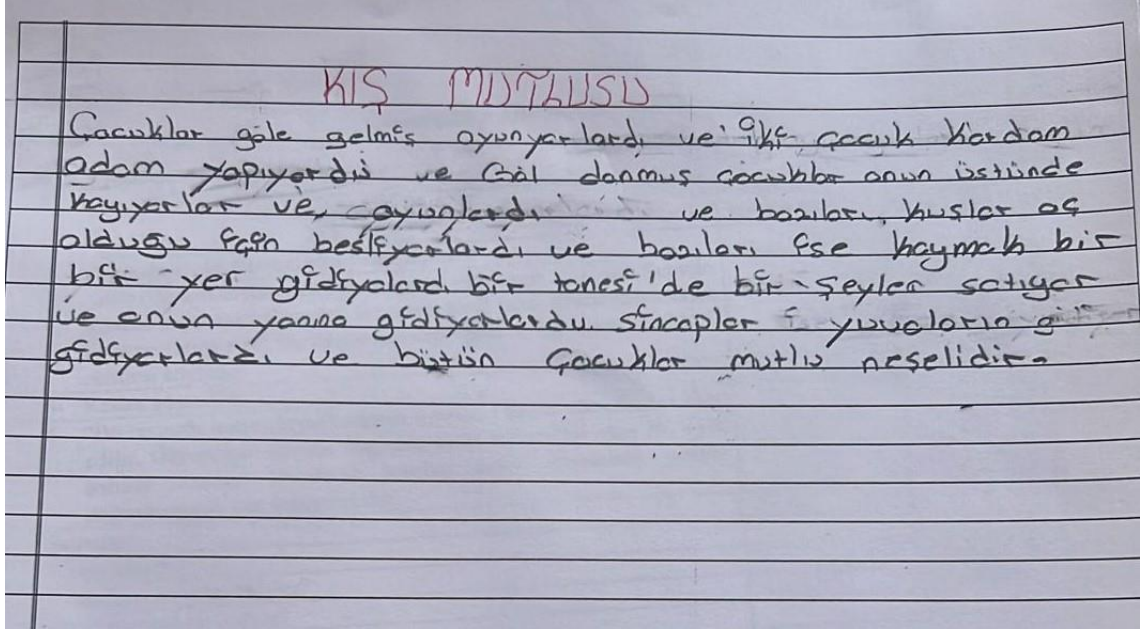 KIŞ MUTLUSU
Çocuklar göle gelmiş oyunyorlardı ve iki çocuk Kardam
adam yapıyordu ve Göl donmuş çocuklar onun üstünde
kayıyorlar ve, oyunlardı ve bazıları, kuşlar aç
olduğu için besliyorlardı ve bazıları ise kaymak bir
bir yer gidiyolard bir tanesi'de bir-şeyler satıyor
ve onun yanına gidiyorlardu. Sincaplar yuvaların
gidiyorlardı ve bütün Çocuklar mutlu neşelidir.